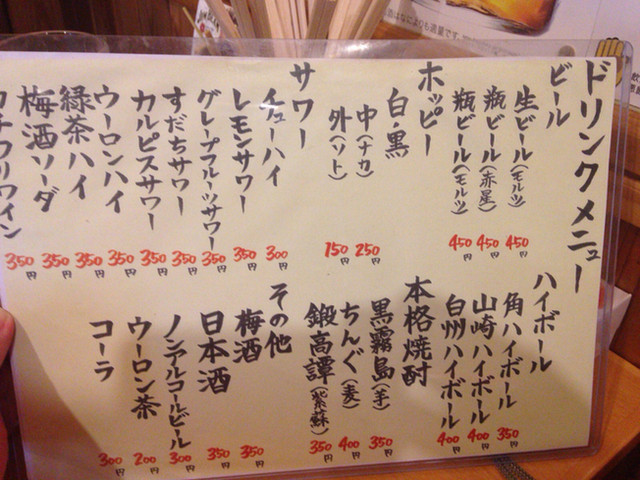 ドリンクメニュー
ビール
生ビール(モルツ) 450円
瓶ビール(赤星) 450円
瓶ビール(モルツ) 450円
ホッピー
白・黒
中(ナカ) 250円
外(ソト) 150円
サワー
チューハイ 300円
レモンサワー 350円
グレープフルーツサワー 350円
すだちサワー 350円
カルピスサワー 350円
ウーロンハイ 350円
緑茶ハイ 350円
梅酒ソーダ 350円
カチワリワイン 350円
ハイボール
角ハイボール 350円
山崎ハイボール 400円
白州ハイボール 400円
本格焼酎
黒霧島(芋) 350円
ちんぐ(麦) 400円
鍛高譚(紫蘇) 350円
その他
梅酒 350円
日本酒 350円
ノンアルコールビール 300円
ウーロン茶 200円
コーラ 300円